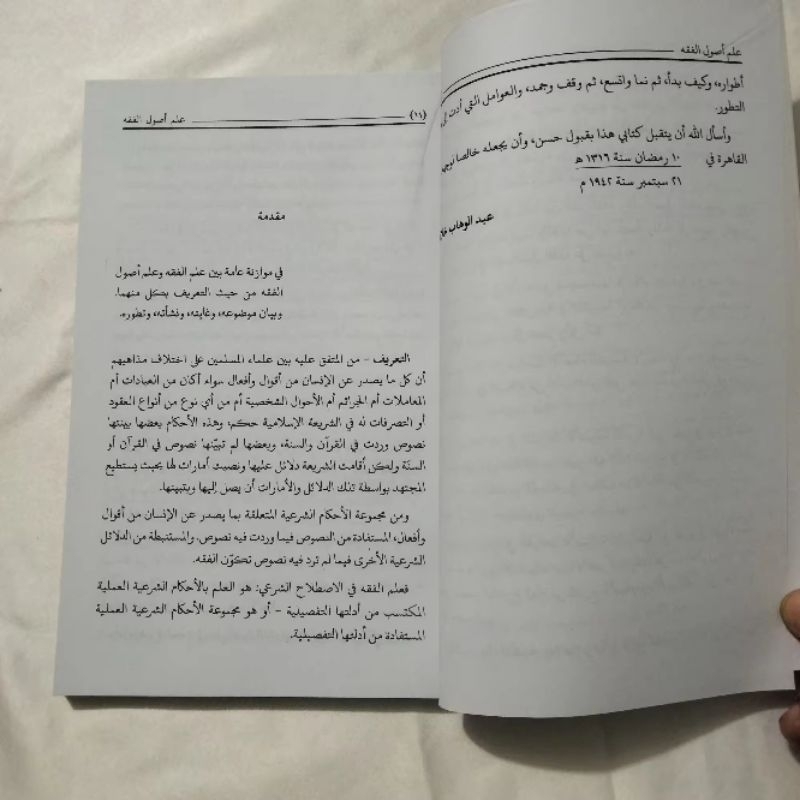 علم أصول الفقه
أطواره، وكيف بدأ، ثم نما واتسع، ثم وقف وجمد، والعوامل التي أدت
التطور.
وأسأل الله أن يتقبل كتابي هذا بقبول حسن، وأن يجعله خالصا
القاهرة في ١٠ رمضان سنة ١٣١٦ ه
٢١ سبتمبر سنة ١٩٤٢ م
عبد الوهاب
(١٤) علم أصول الفقه
مقدمة
في موازنة عامة بين علم الفقه وعلم أصول
الفقه من حيث التعريف بكل منهما.
وبيان موضوعه، وغايته، ونشأته، وتطوره.
التعريف - من المتفق عليه بين علماء المسلمين على اختلاف مذاهبهم
أن كل ما يصدر عن الإنسان من أقوال وأفعال سواء أكان من العبادات أم
المعاملات أم الجرائم أم الأحوال الشخصية أم من أي نوع من أنواع العقود
أو التصرفات له في الشريعة الإسلامية حكم، وهذه الأحكام بعضها بينتها
نصوص وردت في القرآن والسنة، وبعضها لم تبيّنها نصوص في القرآن أو
السنّة ولكن أقامت الشريعة دلائل عليها ونصبت أمارات لها بحيث يستطيع
المجتهد بواسطة تلك الدلائل والأمارات أن يصل إليها ويتبينها.
ومن مجموعة الأحكام الشرعية المتعلقة بما يصدر عن الإنسان من أقوال
وأفعال، المستفادة من النصوص فيما وردت فيه نصوص. والمستنبطة من الدلائل
الشرعية الأخرى فيما لم ترد فيه نصوص تكوّن الفقه.
فعلم الفقه في الاصطلاح الشرعي: هو العلم بالأحكام الشرعية العملية
المكتسب من أدلتها التفصيلية - أو هو مجموعة الأحكام الشرعية العملية
المستفادة من أدلتها التفصيلية.